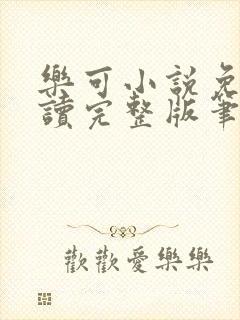 樂可小說免
讀完整版筆
歡歡愛樂樂